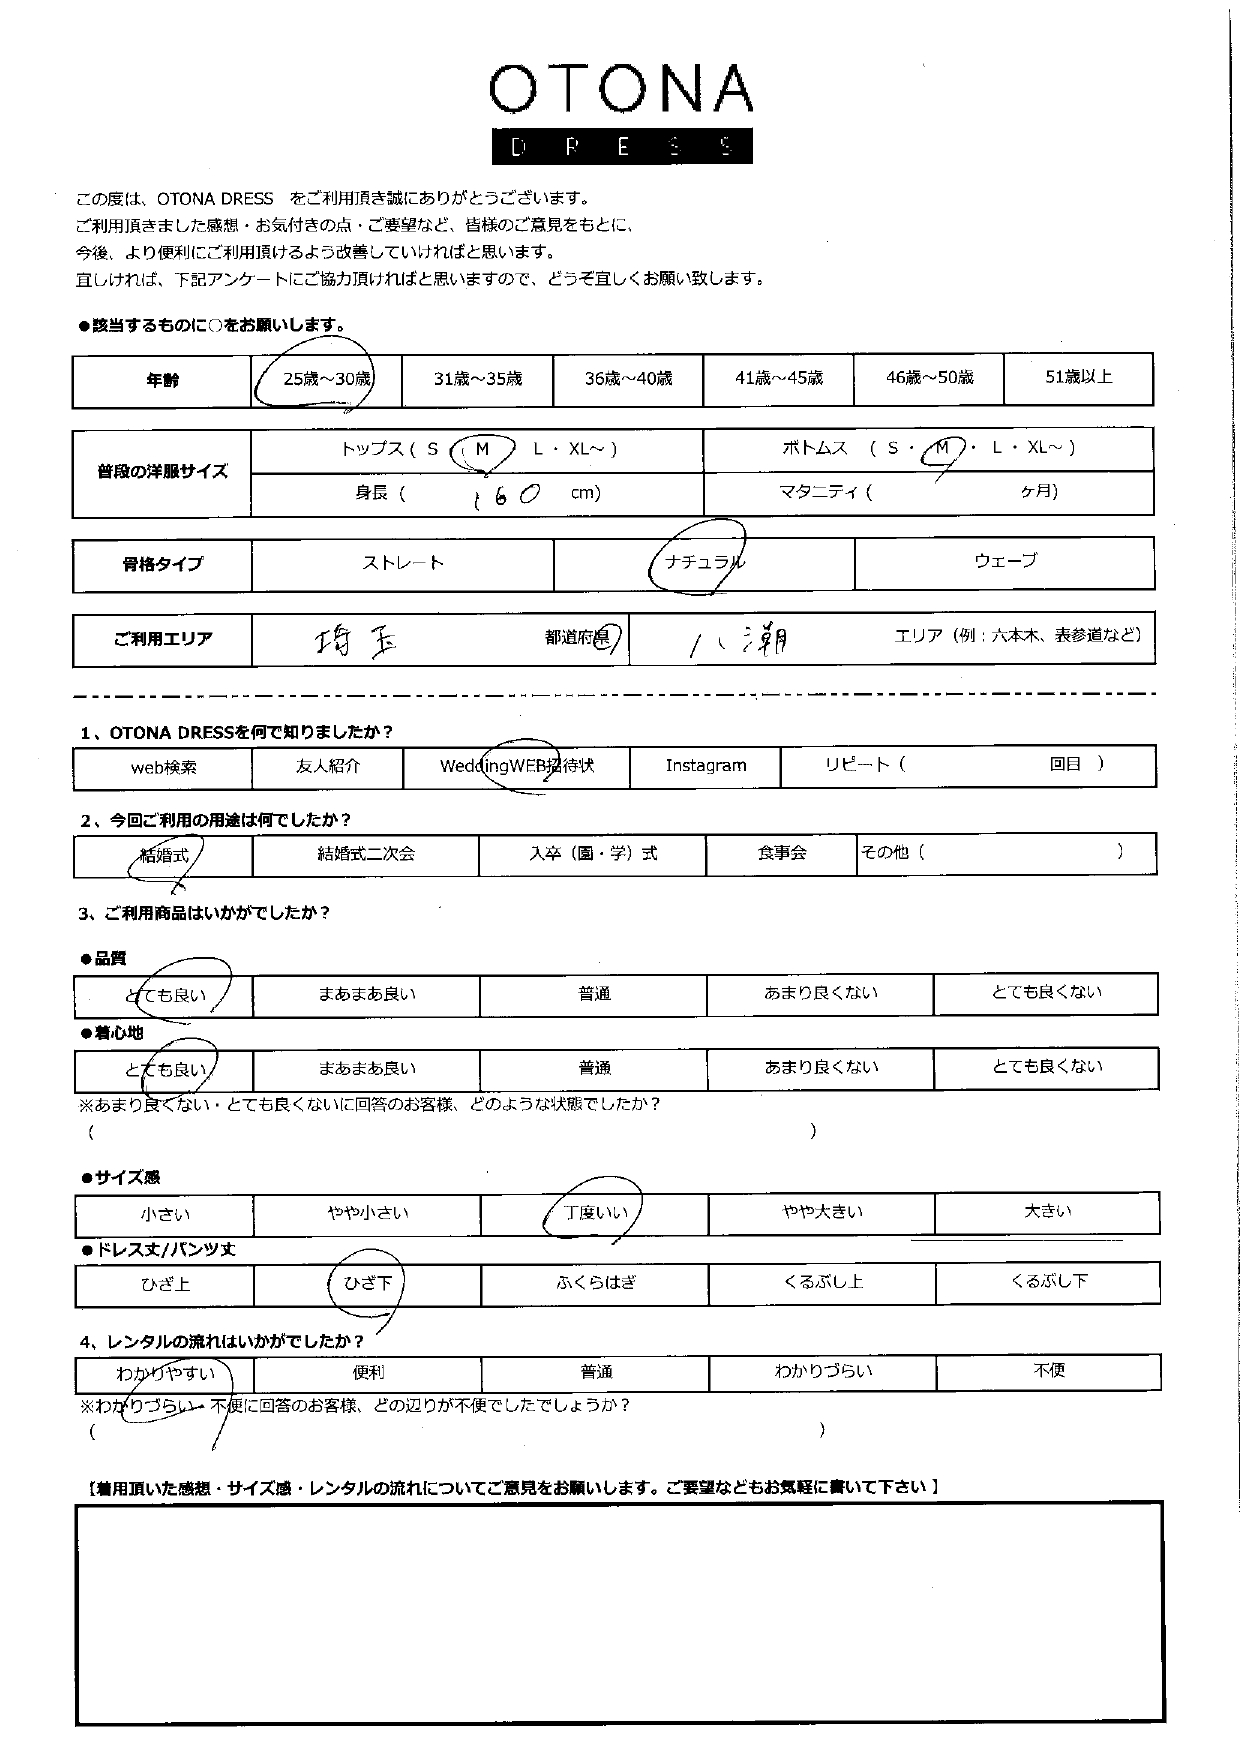 OTONA
DRESS
この度は、OTONA DRESS をご利用頂き誠にありがとうございます。
ご利用頂きました感想・お気付きの点・ご要望など、皆様のご意見をもとに、
今後、より便利にご利用頂けるよう改善していければと思います。
宜しければ、下記アンケートにご協力頂ければと思いますので、どうぞ宜しくお願い致します。
●該当するものに○をお願いします。
年齢 25歳～30歳 31歳～35歳 36歳～40歳 41歳～45歳 46歳～50歳 51歳以上
普段の洋服サイズ トップス ( S ・ M ・ L ・ XL～ ) ボトムス ( S ・ M ・ L ・ XL～ )
身長 ( 160 cm) マタニティ ( ケ月)
骨格タイプ ストレート ナチュラル ウェーブ
ご利用エリア 埼玉 都道府県 八潮 エリア（例：六本木、表参道など）
1、OTONA DRESSを何で知りましたか？
web検索 友人紹介 WeddingWEB招待状 Instagram リピート ( 回目 )
2、今回ご利用の用途は何でしたか？
結婚式 結婚式二次会 入卒（園・学）式 食事会 その他 ( )
3、ご利用商品はいかがでしたか？
●品質
とても良い まあまあ良い 普通 あまり良くない とても良くない
●着心地
とても良い まあまあ良い 普通 あまり良くない とても良くない
※あまり良くない・とても良くないに回答のお客様、どのような状態でしたか？
( )
●サイズ感
小さい やや小さい 丁度いい やや大きい 大きい
●ドレス丈/パンツ丈
ひざ上 ひざ下 ふくらはぎ くるぶし上 くるぶし下
4、レンタルの流れはいかがでしたか？
わかりやすい 便利 普通 わかりづらい 不便
※わかりづらい・不便に回答のお客様、どの辺りが不便でしたでしょうか？
( )
【着用頂いた感想・サイズ感・レンタルの流れについてご意見をお願いします。ご要望などもお気軽に書いて下さい 】